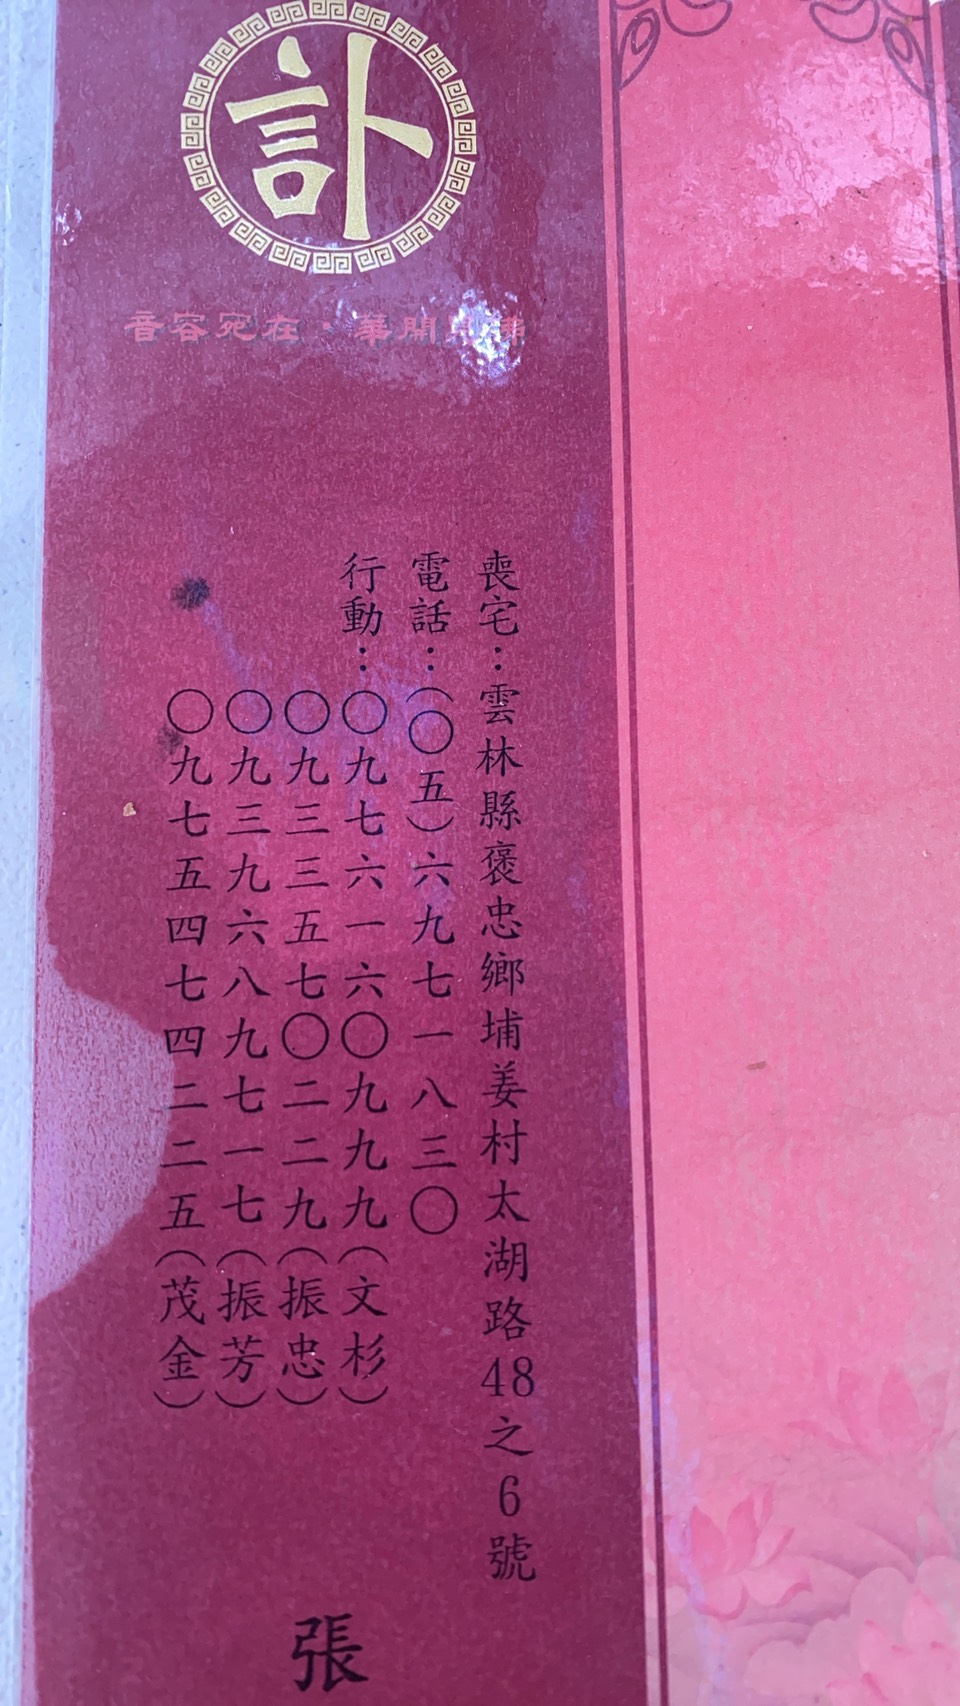 訃
音容宛在・華開見佛
喪宅：雲林縣褒忠鄉埔姜村太湖路48之6號
電話：（〇五）六九七一八三〇
行動：〇九七六一六〇九九九（文杉）
〇九三三五七〇二二九（振忠）
〇九三九六八九七一七（振芳）
〇九七五四七四二二五（茂金）
張